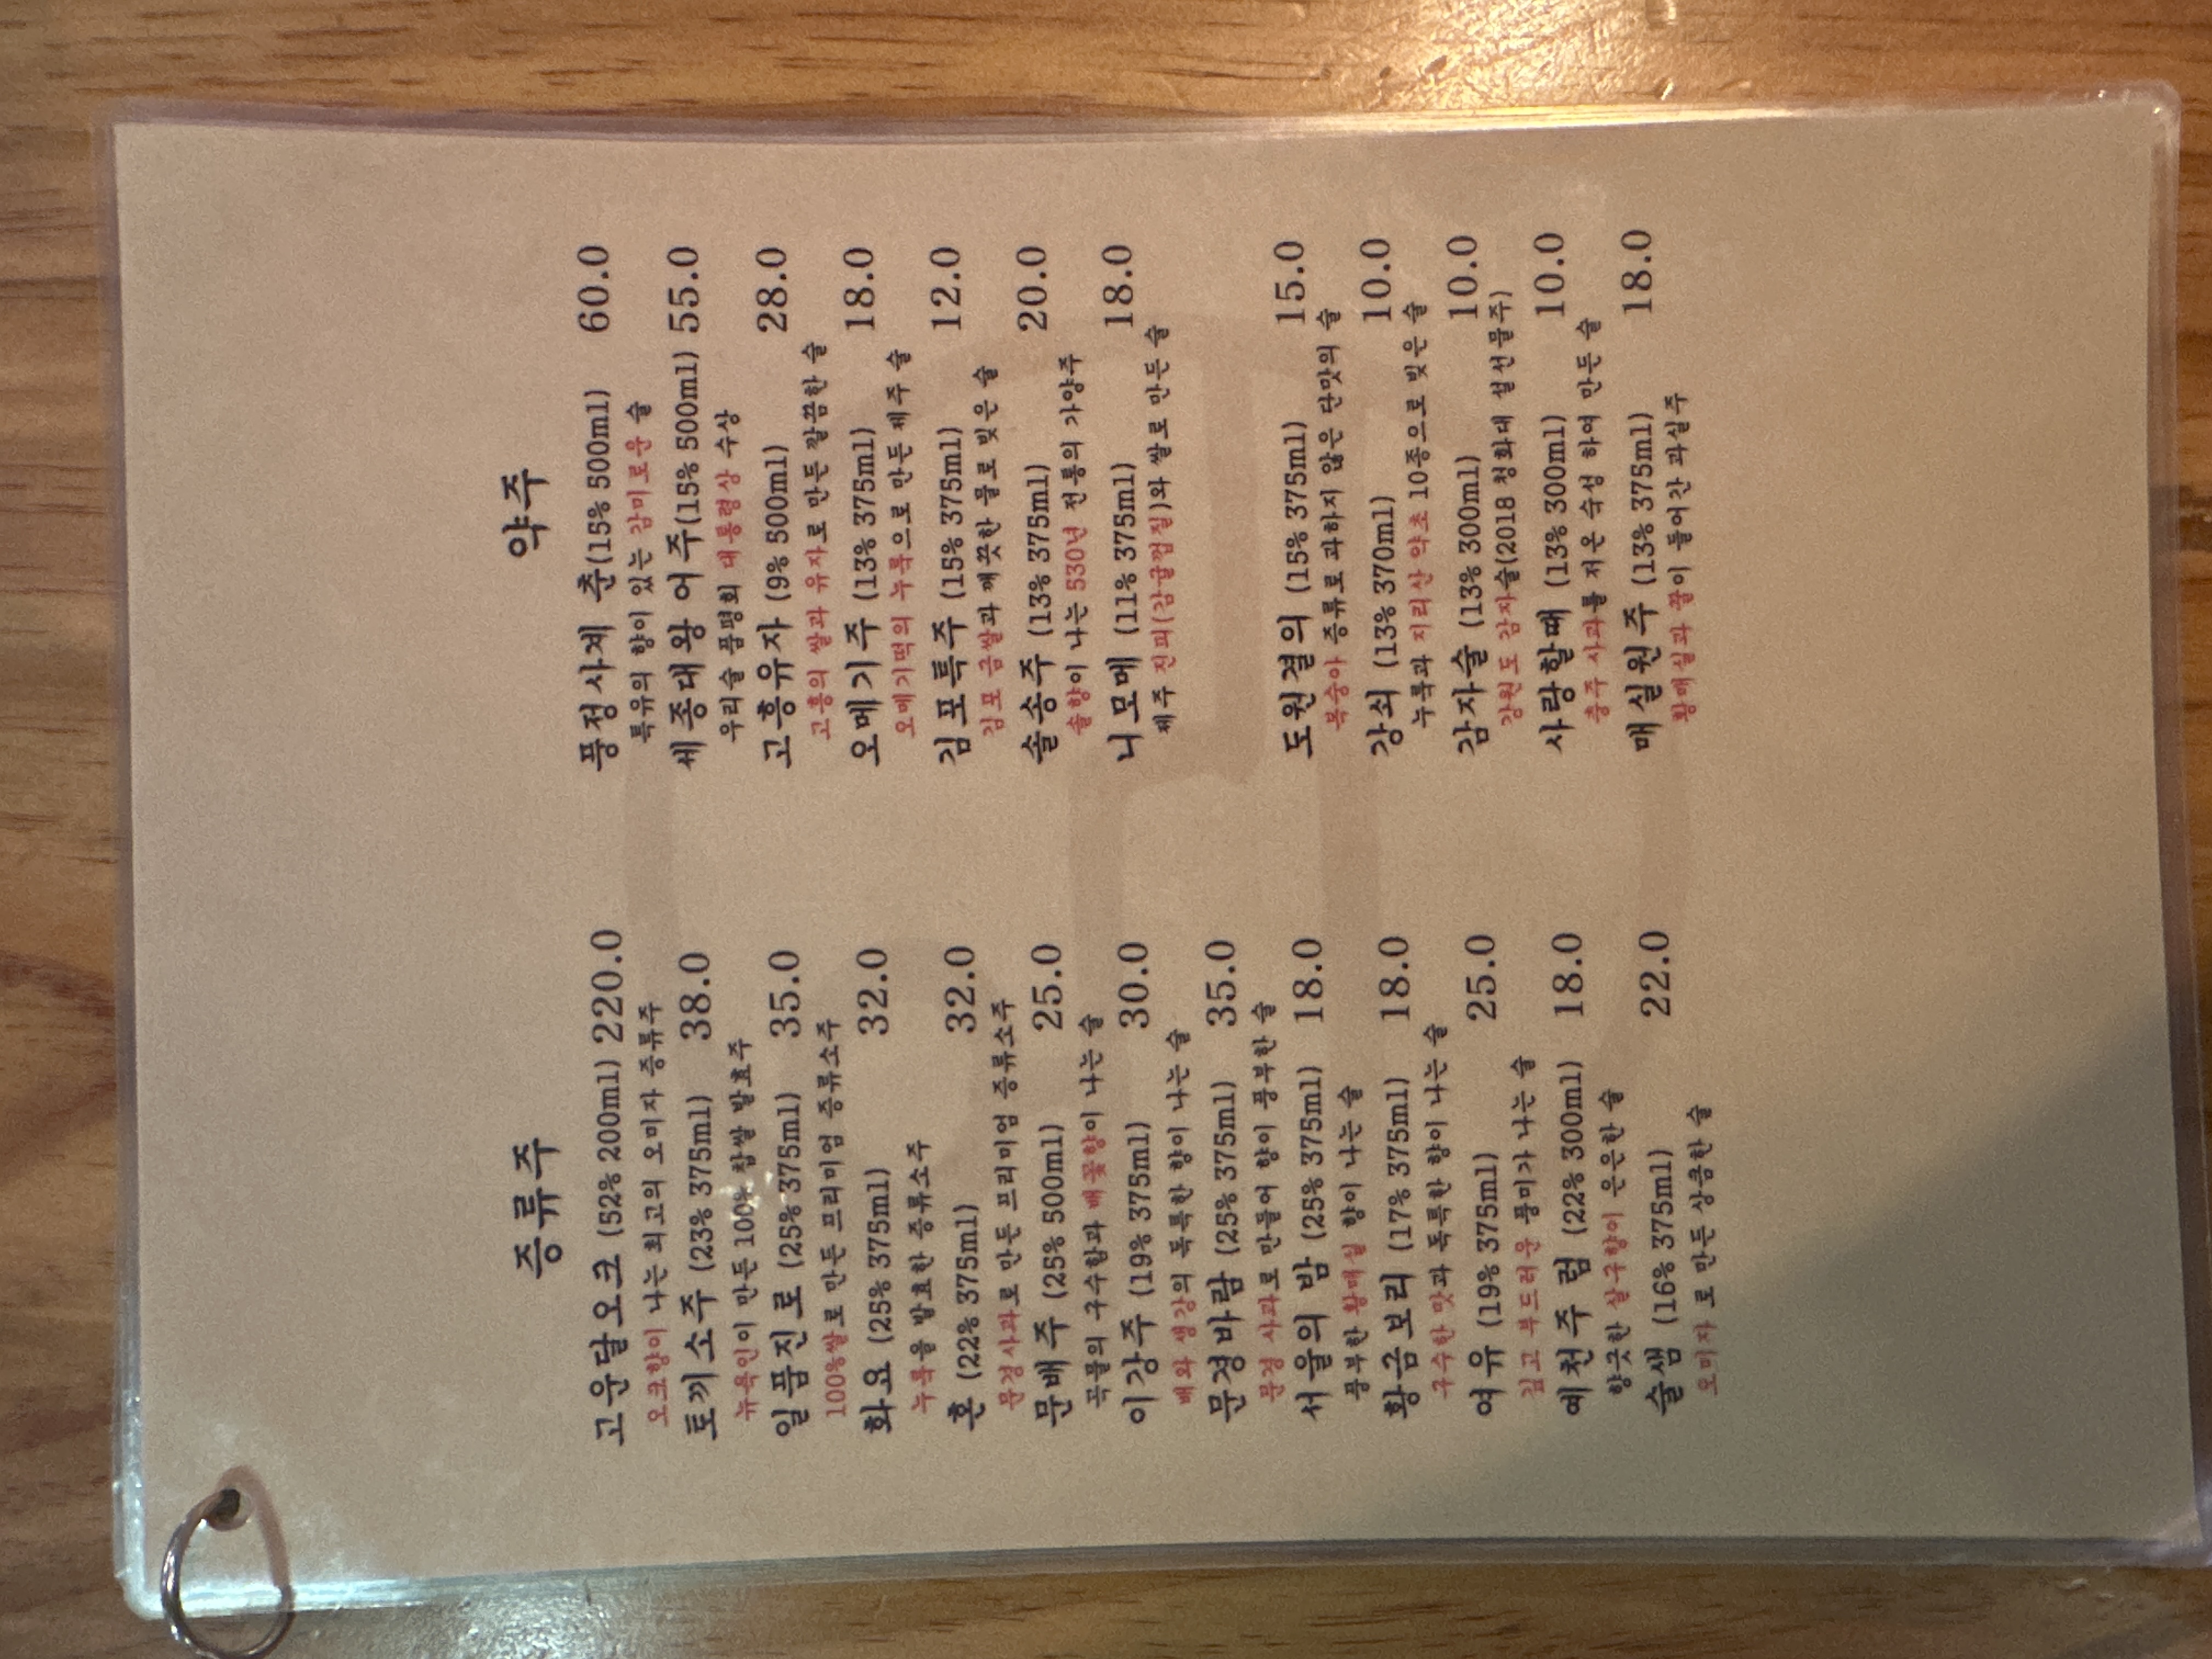 증류주
고운달오크 (52% 200ml) 220.0
오크향이 나는 최고의 오미자 증류주
토끼소주 (23% 375ml) 38.0
뉴욕인이 만든 100% 찹쌀 발효주
일품진로 (25% 375ml) 35.0
100%쌀로 만든 프리미엄 증류소주
화요 (25% 375ml) 32.0
누룩을 발효한 증류소주
혼 (22% 375ml) 32.0
문경사과로 만든 프리미엄 증류소주
문배주 (25% 500ml) 25.0
곡물의 구수함과 배꽃향이 나는 술
이강주 (19% 375ml) 30.0
배와 생강의 독특한 향이 나는 술
문경바람 (25% 375ml) 35.0
문경 사과로 만들어 향이 풍부한 술
서울의 밤 (25% 375ml) 18.0
풍부한 황매실 향이 나는 술
황금보리 (17% 375ml) 18.0
구수한 맛과 독특한 향이 나는 술
여유 (19% 375ml) 25.0
깊고 부드러운 풍미가 나는 술
예천주 럼 (22% 300ml) 18.0
향긋한 살구향이 은은한 술
술샘 (16% 375ml) 22.0
오미자 로 만든 상큼한 술
약주
풍정사계 춘(15% 500ml) 60.0
특유의 향이 있는 감미로운 술
세종대왕 어주(15% 500ml) 55.0
우리술 품평회 대통령상 수상
고흥유자 (9% 500ml) 28.0
고흥의 쌀과 유자로 만든 깔끔한 술
오메기주 (13% 375ml) 18.0
오메기떡의 누룩으로 만든 제주 술
김포특주 (15% 375ml) 12.0
김포 금쌀과 깨끗한 물로 빚은 술
솔송주 (13% 375ml) 20.0
솔향이 나는 530년 전통의 가양주
니모메 (11% 375ml) 18.0
제주 진피(감귤껍질)와 쌀로 만든 술
도원결의 (15% 375ml) 15.0
복숭아 증류로 과하지 않은 단맛의 술
강쇠 (13% 370ml) 10.0
누룩과 지리산 약초 10종으로 빚은 술
감자술 (13% 300ml) 10.0
강원도 감자술(2018 청화대 설선물주)
사랑할때 (13% 300ml) 10.0
충주 사과를 저온 숙성 하여 만든 술
매실원주 (13% 375ml) 18.0
황매실과 꿀이 들어간 과실주